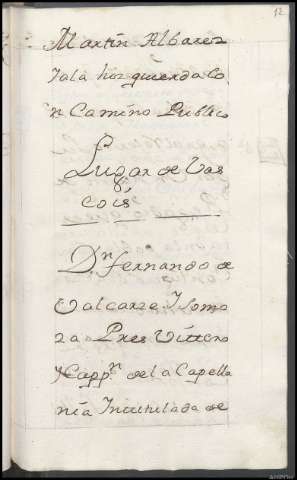 12
Martin Albarez
Y a la hizquierda Co
n Camino Publico
Lugar de Vas
cois
Dn fernando de
Valcarze Y Somo
za Pres Vittero
y Cappn de la Capella
nia Inttitulada de